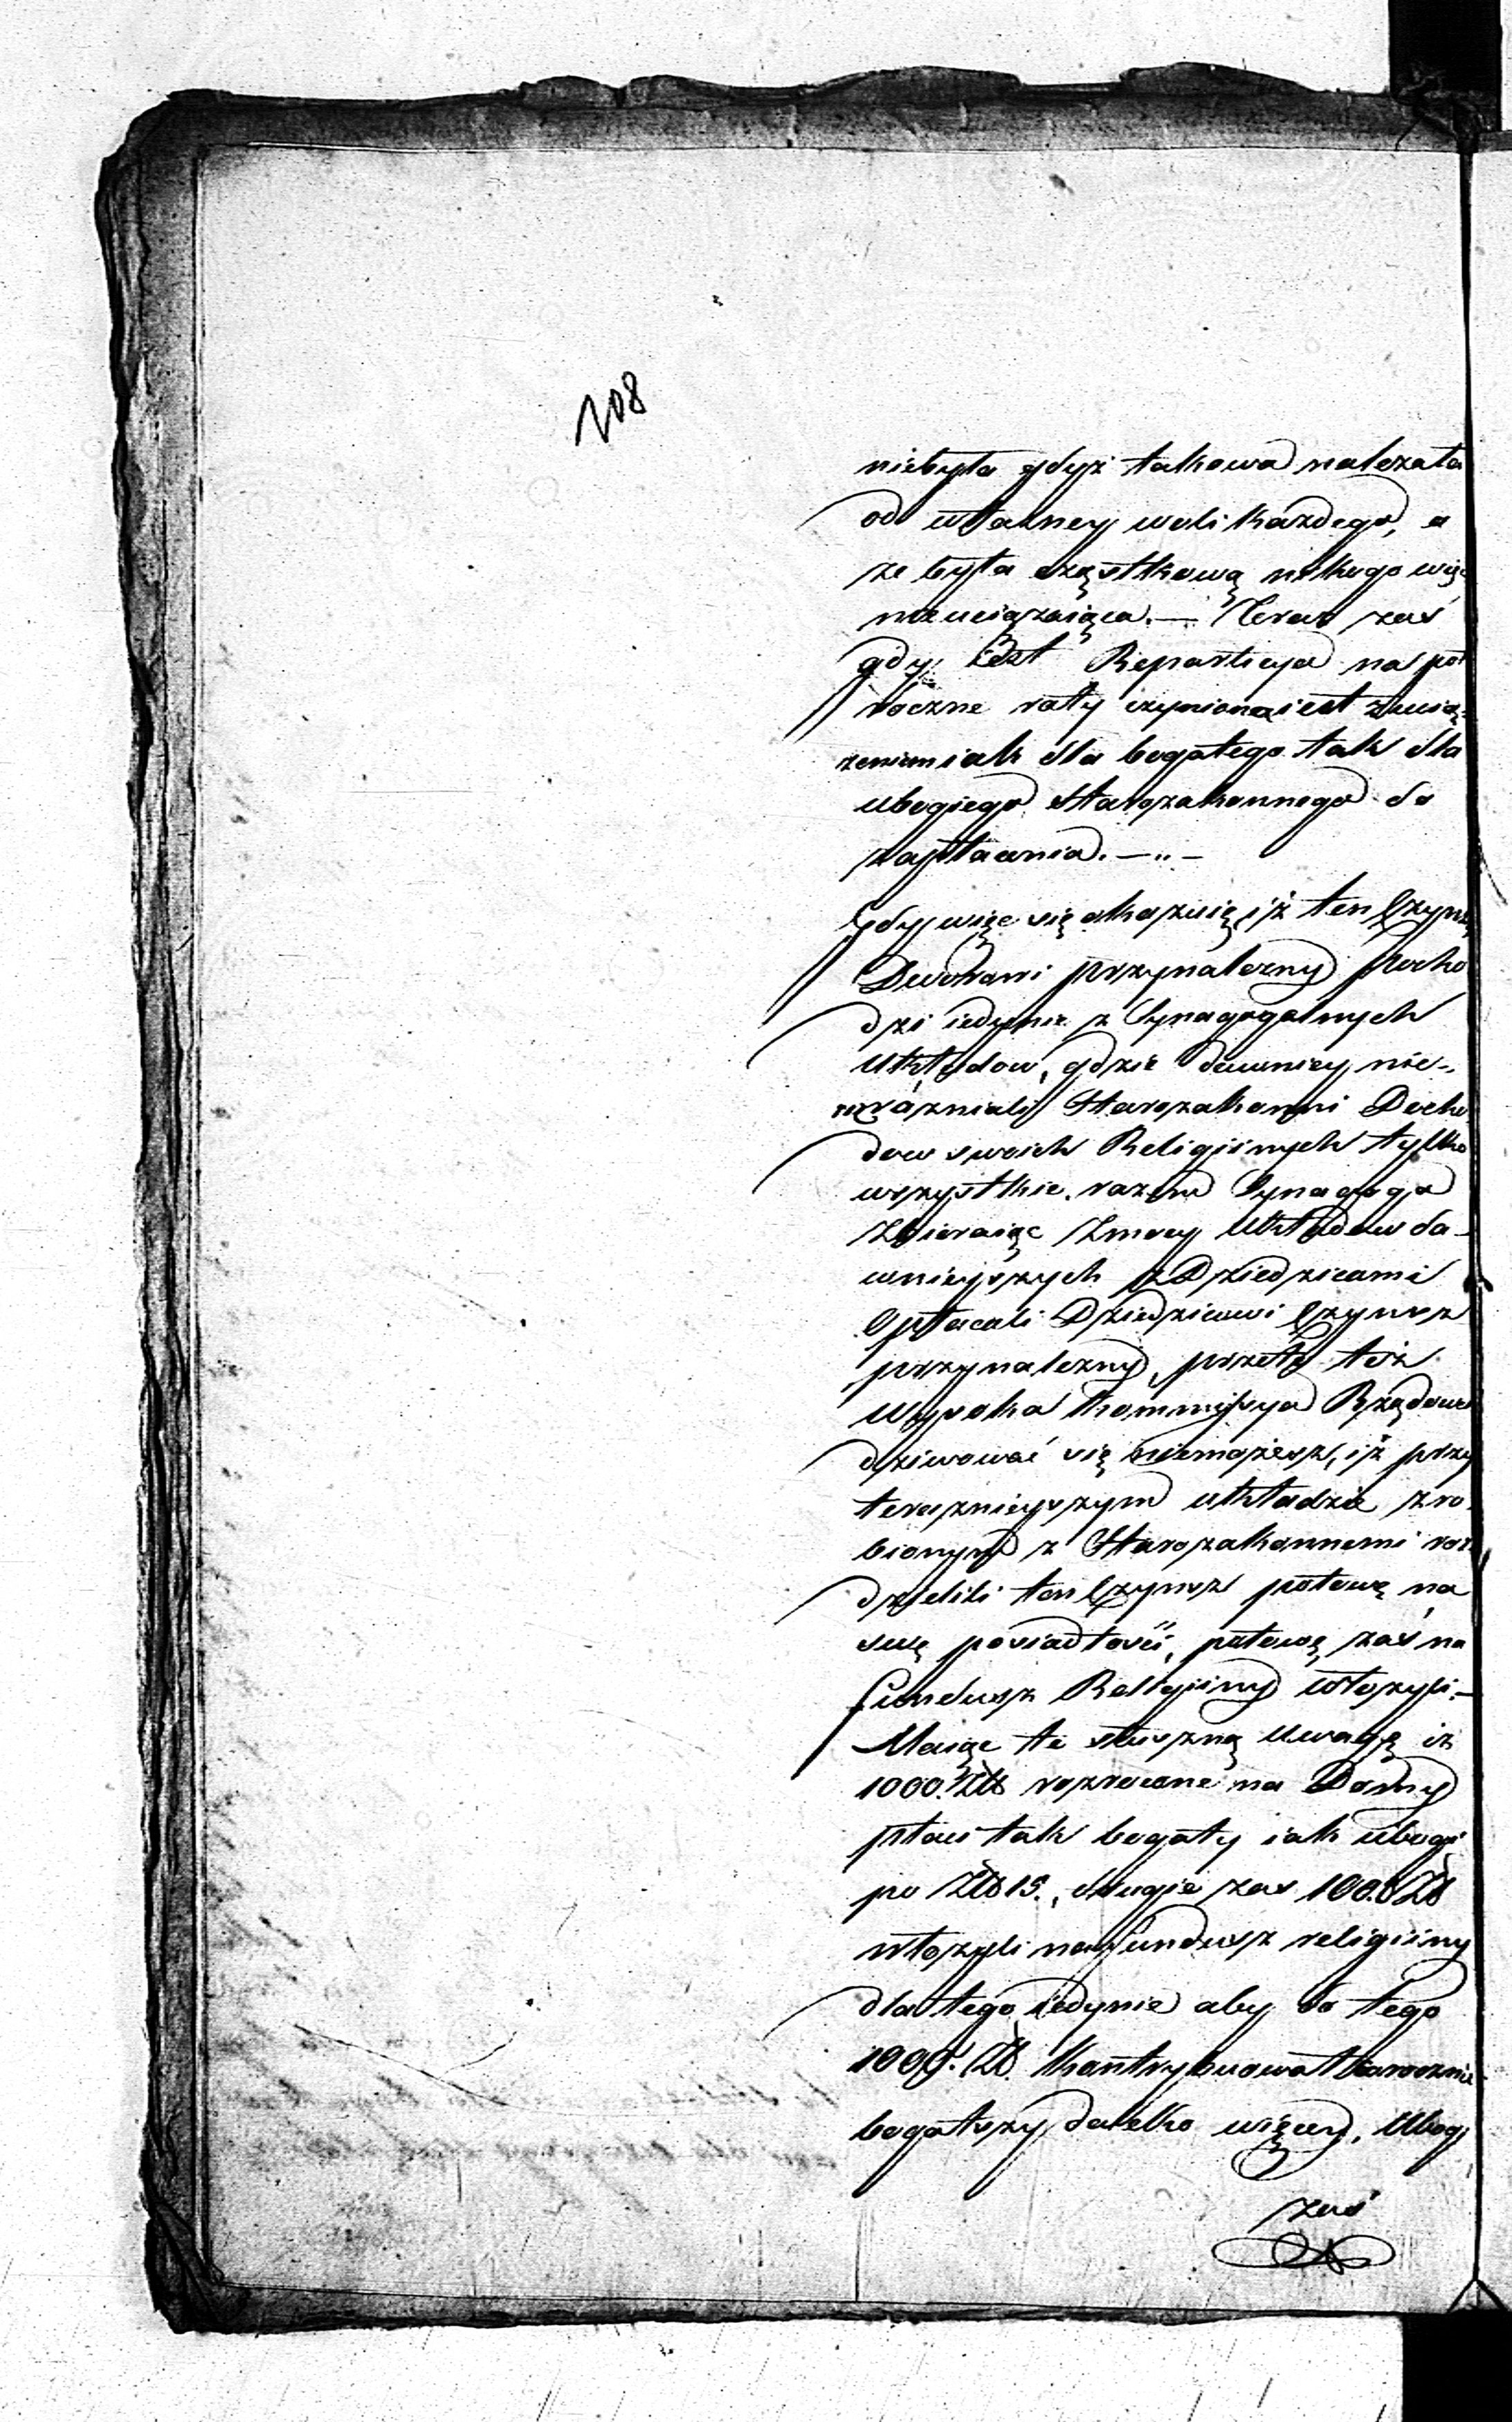 108
niebyła gdyż takowa nalezała
od własney woli każdego, a
ze była cząstkową nikogo więc
nieuciążaiąca. — Teraz zaś
gdy iest Repartycya na pół
roczne raty czyniona iest z ucią-
zeniem iak dla bogatego tak dla
ubogiego Starozakonnego do
zapłacenia. — „ —
Gdy więc się okazuie iż ten Czynsz
Dworowi przynalezny pocho
dzi iedynie z Synagogalnych
Układow, gdzie dawniey nie-
rozrózniali Starozakonni Docho
dow swoich Religiinych tylko
wszystkie razem Synagoga
Zbieraiąc z mocy Układow da-
wnieyszych z Dziedzicami
Opłacali Dziedzicowi Czynsz
przynalezny, przeto też
Wysoka Kommissya Rządowa
dziwować się niemożesz, iż przy
teraznieyszym układzie zro-
bionym z Starozakonnemi roz
dzielili ten Czynsz połowę na
swe posiadłości, połowę zaś na
Fundusz Religiiny włozyli. —
Maiąc tę słuszną Uwagę iż
1000. Zł rozrucone na Domy
płaci tak bogaty iak ubogi
po Zł 15., drugie zas 1000 Zł
włozyli na Fundusz religiiny
dla tego iedynie aby do tego
1000. Zł. Kontrybuował corocznie
bogatszy daleko więcey, Ubogi
zaś